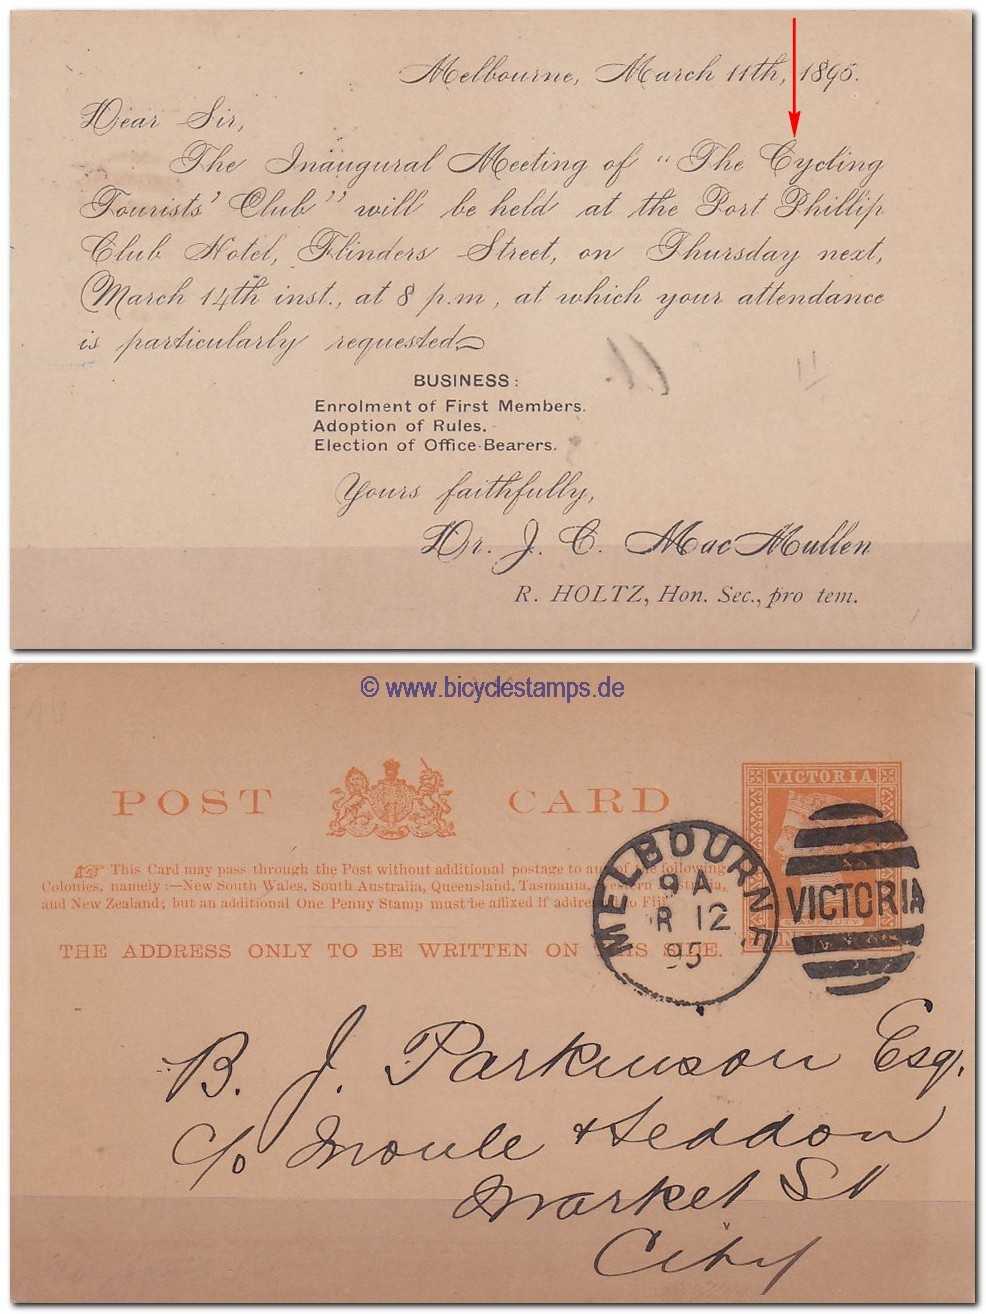 Melbourne, March 11th, 1895.
Dear Sir,
The Inaugural Meeting of "The Cycling
Tourists' Club" will be held at the Port Phillip
Club Hotel, Flinders Street, on Thursday next,
March 14th inst., at 8 p.m., at which your attendance
is particularly requested
BUSINESS:
Enrolment of First Members.
Adoption of Rules.
Election of Office-Bearers.
Yours faithfully,
Dr. J. C. MacMullen
R. HOLTZ, Hon. Sec., pro tem.
© www.bicyclestamps.de
POST CARD
VICTORIA
This Card may pass through the Post without additional postage to any of the following
Colonies, namely :—New South Wales, South Australia, Queensland, Tasmania, Western Australia,
and New Zealand; but an additional One Penny Stamp must be affixed if addressed to Fiji.
THE ADDRESS ONLY TO BE WRITTEN ON THIS SIDE.
MELBOURNE
9 A
R 12
95
VICTORIA
B. J. Parkinson Esq.
c/o Moule & Seddon
Market St
City